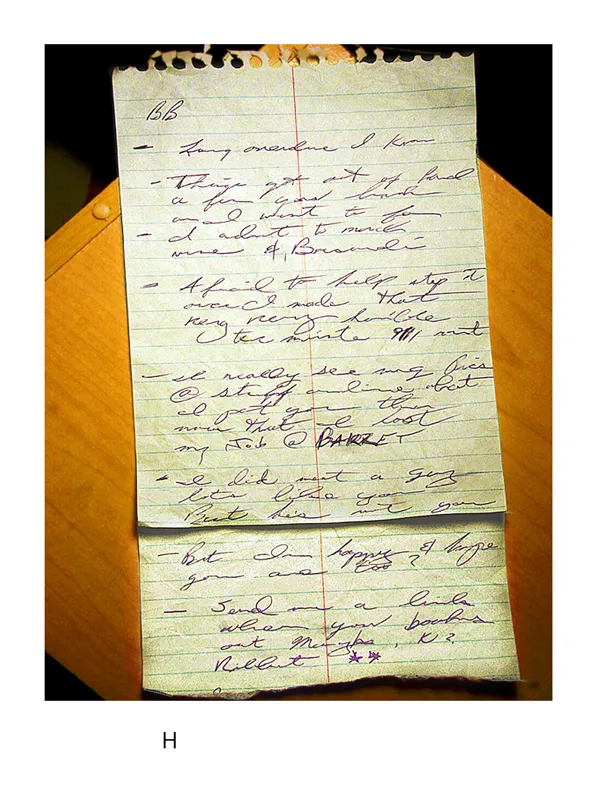 BB
- Long overdue I know
- Things got out of hand
a few years back
and went to far
- I admit to much
wine & Bacardi
- Afraid to help stop it
once I made that
very very horrible
ten minute 911
- I really see my pics
@ stuff online but
I put you thru
more than I lost
my Job @ BARRET
- I did meet a guy
lots like you
But his not you
- But Im happy & hope
you are too?
- Send me a link
when your books
out Maybe, K?
**
H